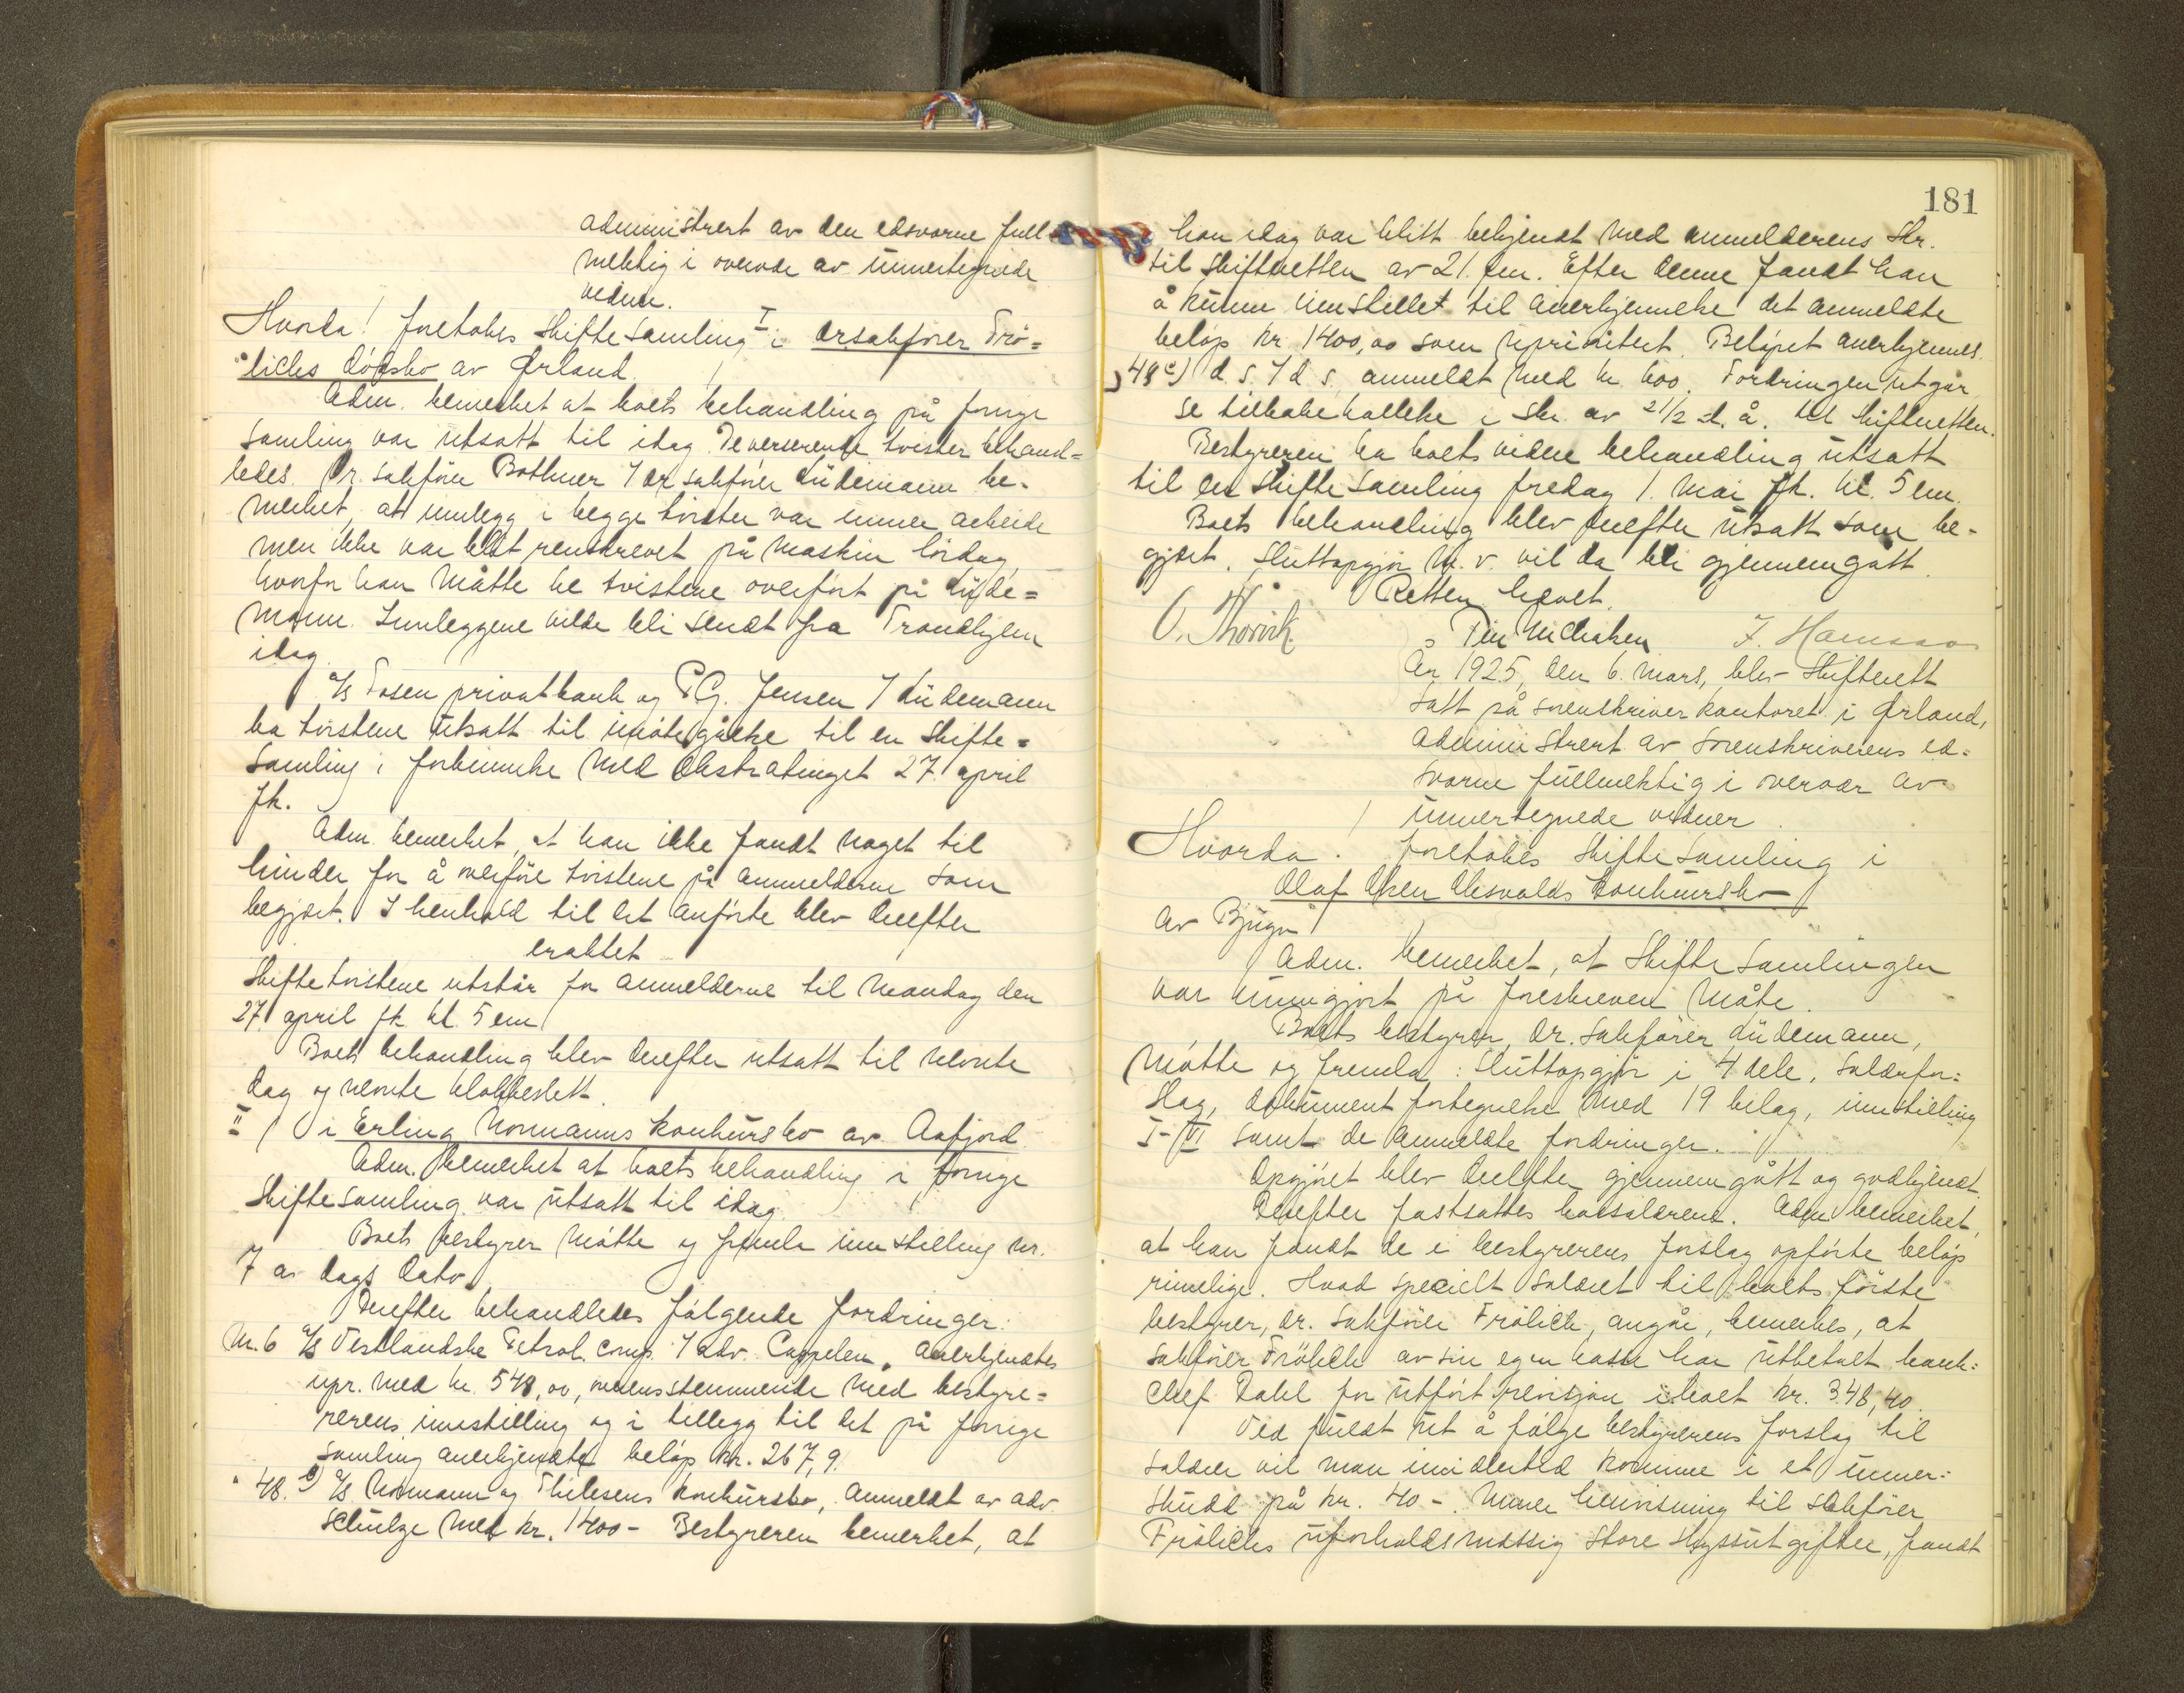 administrert av den edsvorne full
mektig i overvær av unnertegnede
vidner.
Hvorda! foretokes skiftesamling I i orsakfører Frö=
lichs dödsbo av Ørland.
Adm. bemerket at boets behandling på forrige
samling var utsatt til idag. De verserende tvister behand=
ledes. Or. sakfører Bothner / or sakfører Lüdemann be-
merket, at innlegg i begge tvister var unner arbeide
men ikke var blit renskrevet på maskin lördag,
hvorfor han måtte be tvistene overfört på Lüde=
mann. Innleggene vilde bli sendt fra Trondhjem
idag.
A/s Fosen privatbank og P.G. Jensen / Lüdemann
ba tvistene utsatt til imötegåelse til en skifte=
samling i forbinnelse med ekstratinget 27. april
fk.
Adm. bemerket, at han ikke fandt noget til
hinder for å overföre tvistene på anmelderne som
begjært. I henhold til det anförte blev derefter
eraktet
Skiftetvistene utstår for anmelderne til mandag den
27. april fk kl. 5 em
Boets behandling blev derefter utsatt til nevnte
dag og nevnte klokkeslett.
II / i Erling Normanns konkursbo av Aafjord.
Adm. bemerket at boets behandling i forrige
skiftesamling var utsatt til idag.
Boets bestyrer mötte og fremla innstilling nr.
7 av dags dato.
Derefter behandledes fölgende fordringer:
Nr. 6 A/s Vestlandske Petrol. comp. / adv. Cappelen, anerkjendtes
upr. med kr. 548,00, overensstemmende med bestyre=
rerens innstilling og i tillegg til det på forrige
samling anerkjendte belöp kr. 267,9.
" 48. b) A/s Normann og Thilesens konkursbo, anmeldt av adv.
Schulze med kr. 1400- Bestyreren bemerket, at
181
han idag var blitt bekjendt med anmelderens skr.
til skifteretten av 21. fm. Efter denne fandt han
å kunne innstillet til anerkjennelse det anmeldte
belöp kr. 1400,00 som uprioritert. Belöpet anerkjennes.
" 48 c) d. s. / d s. anmeldt med kr. 600. Fordringen utgår,
se tilbakekallelse i skr. av 21/2 d. å. til skifteretten.
Bestyreren ba boets videre behandling utsatt
til en skiftesamling fredag 1. mai fk. kl. 5 em.
Boets behandling blev derefter utsatt som be-
gjært. Sluttopgjör m. v. vil da bli gjennemgått.
Retten hævet.
O. Thorvik.
År 1925, den 6. mars, blev skifterett
satt på sorenskriverkontoret i Ørland,
administrert av sorenskriverens ed=
svorne fullmektig i overvær av
unnertegnede vidner.
Hvorda! foretokes skiftesamling i
Olaf Olsen konkursbo
av Bjugn
Adm. bemerket, at skiftesamlingen
var kunngjort på foreskreven måte.
Boets bestyrer, or. sakfører Lüdemann,
mötte og fremla: Sluttopgjör i 4 dele, salærfor=
slag, dokumentfortegnelse med 19 bilag, innstilling
I-VI samt de anmeldte fordringer.
Opgjöret blev derefter gjennemgått og godkjendt.
Derefter fastsattes bosalærene. Adm bemerket,
at han fandt de i bestyrerens forslag opförte belöp
rimelige. Hvad specielt salæret til boets förste
bestyrer, or. sakförer Frölich, angår, bemerkes, at
sakfører Frölich av sin egen kasse har utbetalt bank=
chef Dahl for utfört revisjon i boet kr. 348,40.
Ved fuldt ut å fölge bestyrerens forslag til
salærer vil man imidlertid komme i et unner=
skudd på kr. 40-. Unner henvisning til sakförer
Frölichs uforholdsmessig store skyssutgifter, fandt